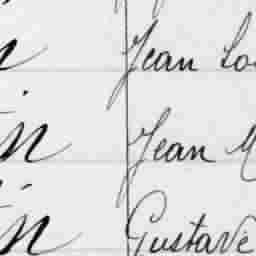 n Jean Lo
in Jean M
in Gustave